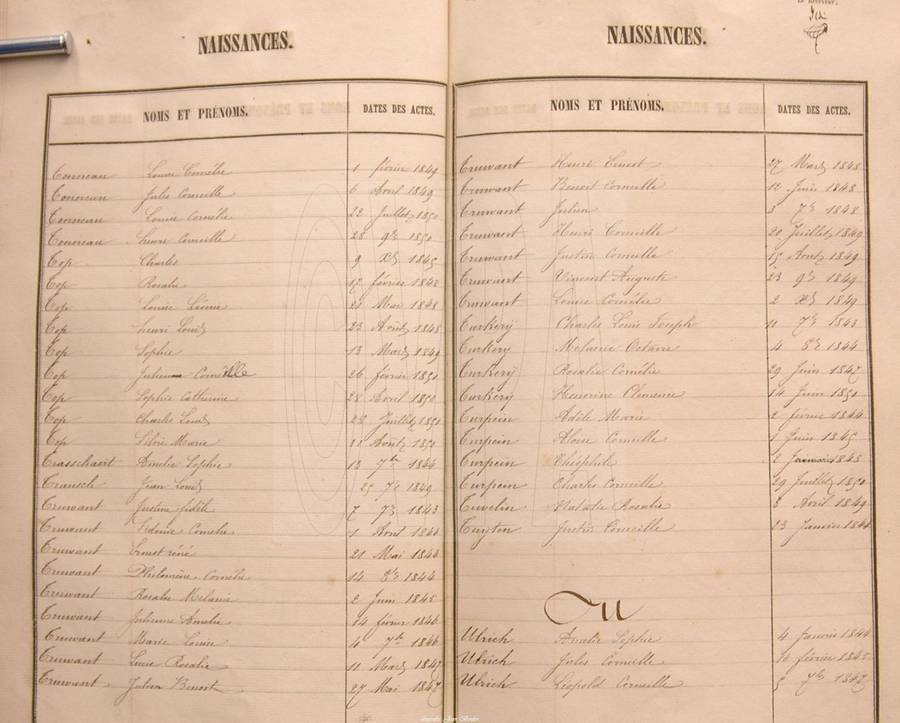 NAISSANCES.
NOMS ET PRÉNOMS. DATES DES ACTES.
Louise Cornélie 1 février 1849
Jules Corneille 6 Avril 1849
Louise Cornélie 22 Juillet 1850
Henri Corneille 28 9bre 1850
Top Charles 9 Xbre 1845
Top Rosalie 12 février 1848
Top Louise Léonie 21 Mai 1848
Top Henri Louis 23 Août 1848
Top Sophie 13 Mars 1849
Top Corneille 26 février 1850
Top Sophie Catherine 28 Avril 1850
Top Charles Louis 23 Juillet 1850
Top Marie Août 1850
Amélie Sophie 13 7bre 1844
Jean Louis 25 7bre 1849
Truwant Justine fidèle 7 7bre 1843
Truwant Cornélie 1 Avril 1844
Truwant Ernest réné 21 Mai 1844
Truwant Philomène Cornélie 14 8bre 1844
Truwant Rosalie Mélanie 2 Juin 1845
Truwant Julienne Amélie 14 février 1846
Truwant Marie Louise 4 7bre 1846
Truwant Rosalie 11 Mars 1847
Truwant Julien Benoit 27 Mai 1847
NAISSANCES.
NOMS ET PRÉNOMS. DATES DES ACTES.
Truwant Henri Ernest 27 Mars 1848
Truwant Benoit Corneille 12 Juin 1848
Truwant Julien 3 7bre 1848
Truwant Henri Corneille 20 Juillet 1849
Truwant Justin Corneille 15 Août 1849
Truwant Vincent Auguste 23 9bre 1849
Truwant Louise Cornélie 2 Xbre 1849
Turkery Charles Louis Joseph 11 7bre 1843
Turkery Mélanie Octavie 4 8bre 1844
Turkery Rosalie Cornélie 29 Juin 1847
Turkery Honorine Clémence 14 Juin 1850
Turpein Adèle Marie 2 février 1844
Turpein Aloïse Corneille 1 Juin 1845
Turpein Théophile 2 1848
Turpein Charles Corneille 29 Juillet 1850
Tuvelin Natalie Rosalie 3 Avril 1849
Tuyten Justin Corneille 23 Janvier 1844
U
Ulrich Amélie Sophie 4 Janvier 1844
Ulrich Jules Corneille 16 février 1845
Ulrich Léopold Corneille 5 7bre 1847